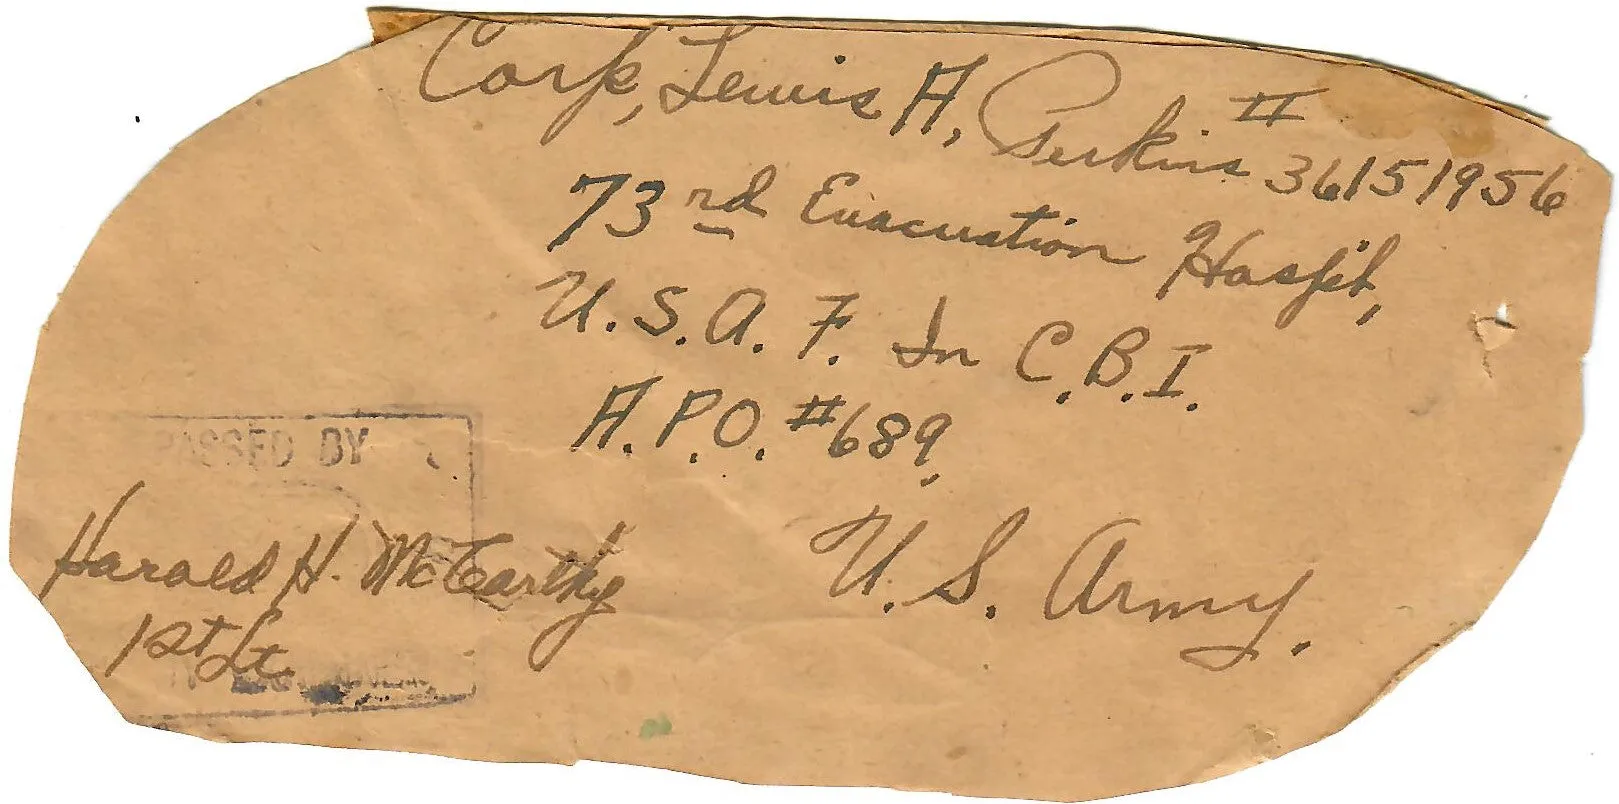 Corp, Lewis A, Perkins #
36151956
73rd Evacuation Hospit,
U.S.A.F. In C.B.I.
A.P.O. #689,
U.S. Army.
PASSED BY
Harold H. McCarthy
1st Lt.